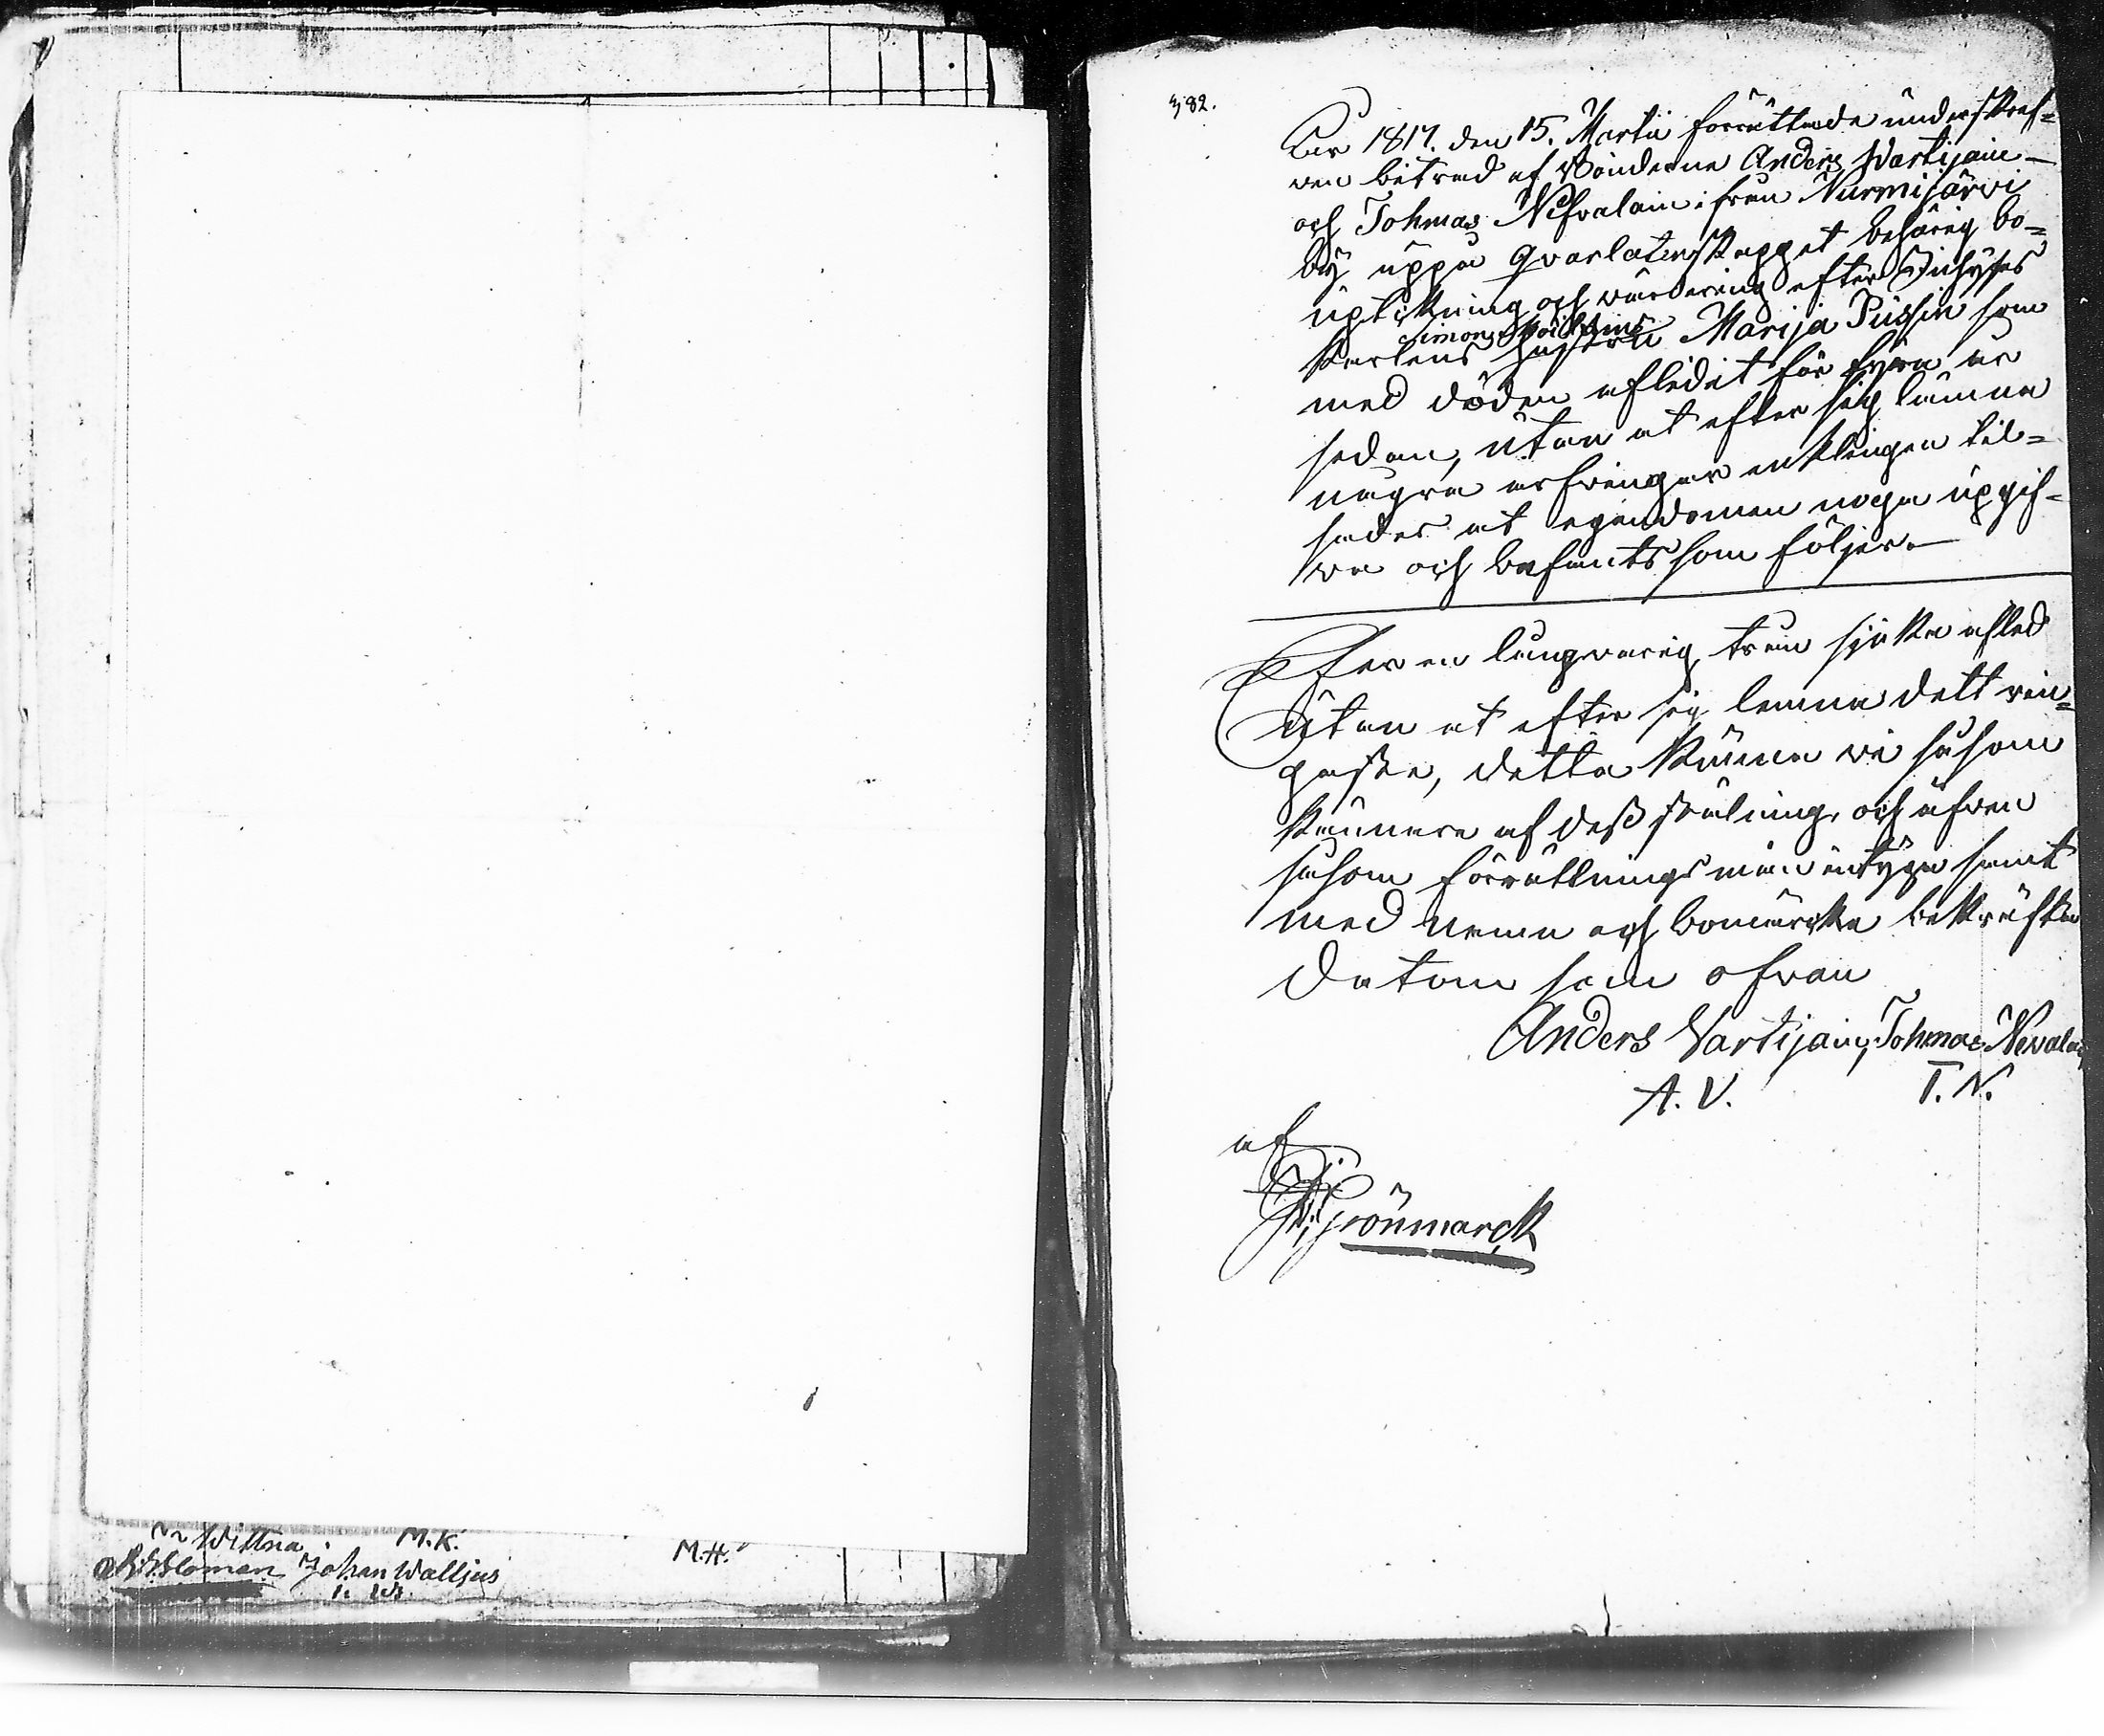 382.
Åhr 1817. den 15. Martii förrättade underskref=
ven biträd af Bönderne Anders Vartijain
och Tohmas Nefvalain ifrån Nurmijärvi
by uppå qvarlåtenskappet behörig bo=
uptekning och värdering efter Inhyses
Simon
karlens hustru Marija Pussin som
med döden aflidit för fyra år
sedan, utan at efter sig lämna
några arfvingar enklingen til=
sades at egendomen noga uppgif=
va och befants som följer.
Efter en långvarig tran sjuka afled
utan at efter sig lemna dett rin=
gaste, detta kunna vi såsom
kännare af dess stälning, och äfven
såsom förrättnings män intyga samt
med namn och bomärke bekräfta
Datom som ofvan
Anders Vartijain, Tohmas Nevalain
A. V. T. N.
af
Grönmarck
Wittna M.K. M.H.
Johan Walljus
I. W.